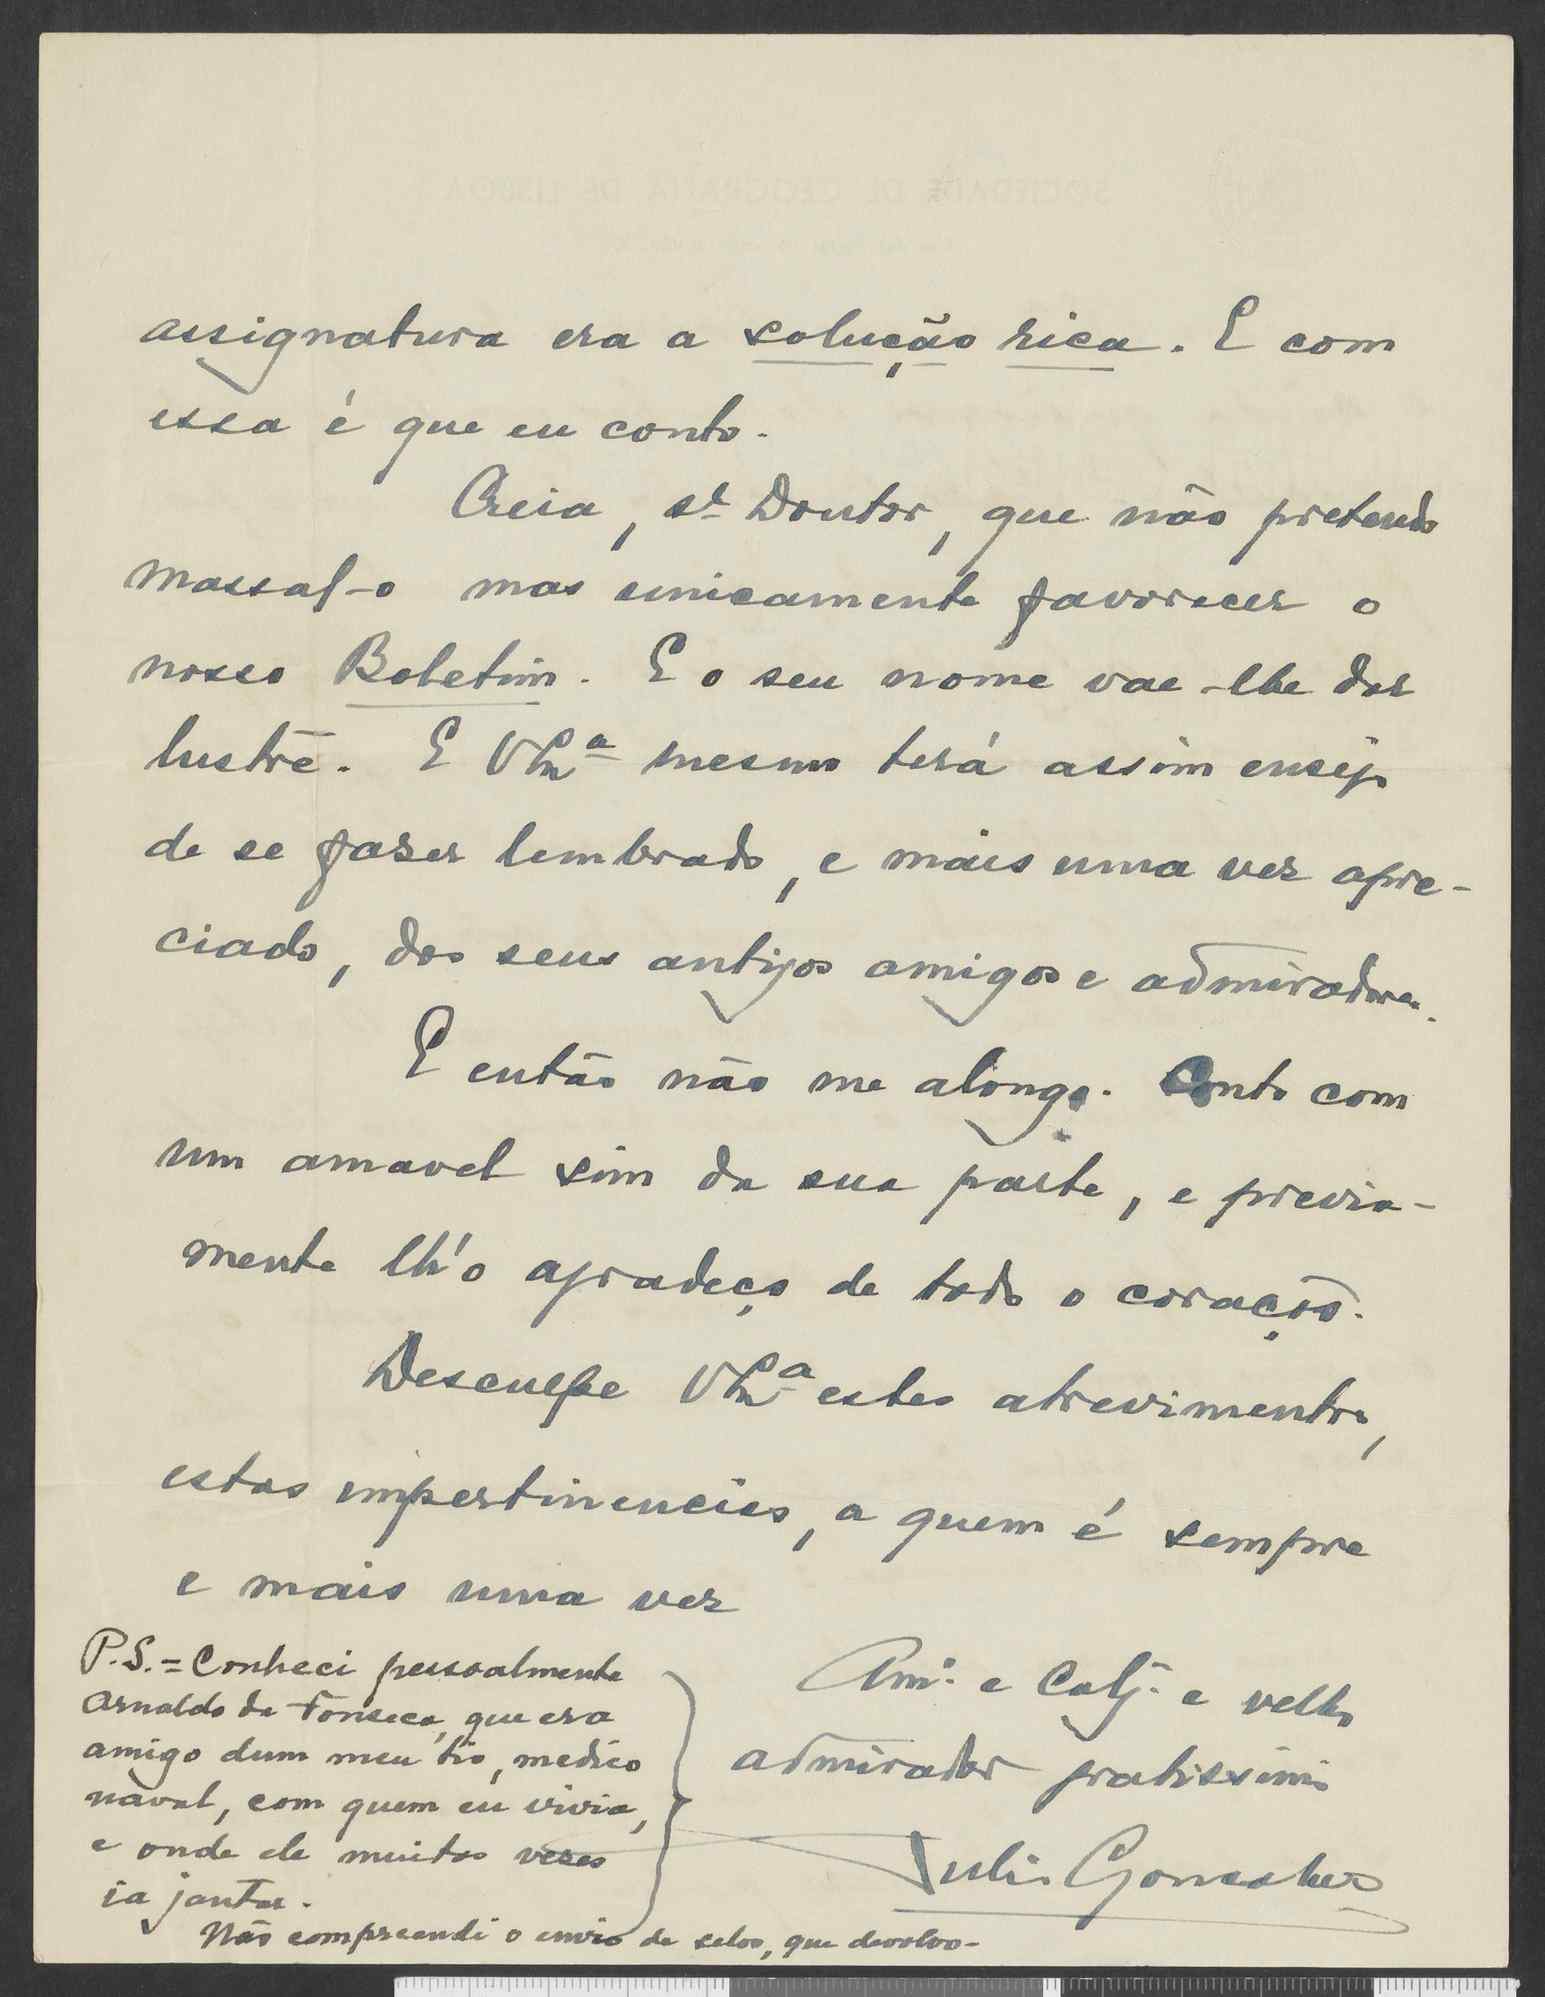 assignatura era a solução rica. E com
essa é que eu conto.
Creia, sr Doutor, que não pretendo
massal-o mas unicamente favorecer o
nosso Boletim. E o seu nome vae-lhe dar
lustre. E V Exa mesmo terá assim ensejo
de se fazer lembrado, e mais uma vez apre-
ciado, dos seus antigos amigos e admiradores.
E então não me alongo. Conto com
um amavel sim da sua parte, e previa-
mente lh'o agradeço de todo o coração.
Desculpe V Exa estes atrevimentos,
estas impertinencias, a quem é sempre
e mais uma vez
Amo. e Colga. e velho
admirador gratissimo
Julio Gonçalves
P.S. = Conheci pessoalmente
Arnaldo da Fonseca, que era
amigo dum meu tio, medico
naval, com quem eu vivia,
e onde ele muitas vezes
ia jantar.
Não compreendi o envio de selos, que devolvo-